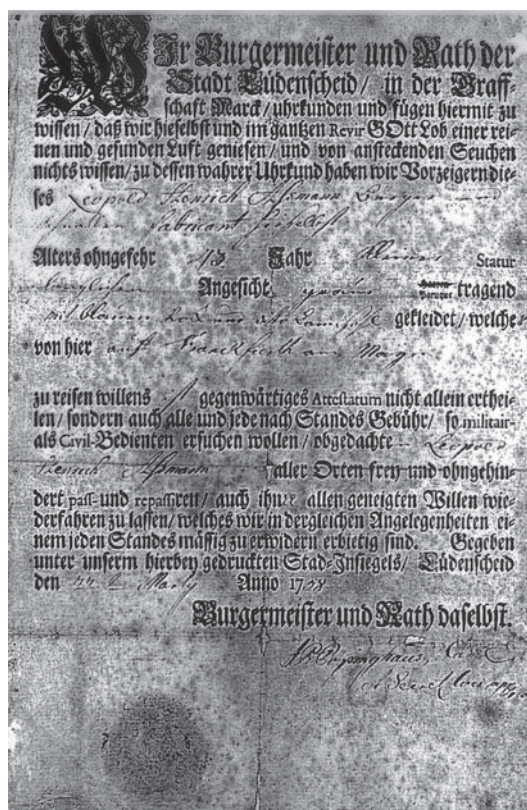 WIr Burgermeister und Rath der
Stadt Lüdenscheid/ in der Graff-
schaft Marck/ uhrkunden und fügen hiermit zu
wissen/ daß wir hieselbst und im gantzen Revir GOtt Lob einer rei-
nen und gesunden Luft geniesen/ und von ansteckenden Seuchen
nichts wissen/ zu dessen wahrer Uhrkund haben wir Vorzeigern die-
ses Leopold Henrich Assmann Bürger und
Fabricant hieselbst
Alters ohngefehr Jahr kleiner Statur
länglichen Angesicht Parucque tragend
mit blauen Rock und dito Camisohl gekleidet/ welcher
von hier auf Franckfurth am Mayn
zu reisen willens ist gegenwärtiges Attestatum nicht allein erthei-
len/ sondern auch alle und jede nach Standes Gebühr/ so militair-
als Civil-Bedienten ersuchen wollen/ obgedachte Leopold
Henrich Assmann aller Orten frey und ohngehin-
dert pass- und repassiren/ auch ihme allen geneigten Willen wie-
derfahren zu lassen/ welches wir in dergleichen Angelegenheiten ei-
nem jeden Standes mässig zu erwidern erbietig sind. Gegeben
unter unserm hierbey gedruckten Stad-Insiegels/ Lüdenscheid
den 22 Marty Anno 1758
Burgermeister und Rath daselbst.